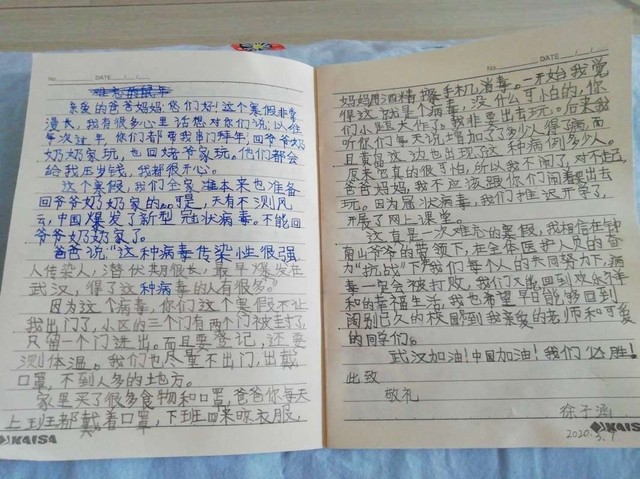 No.
DATE / /
难忘的鼠年
亲爱的爸爸妈妈:您们好!这个寒假非常
漫长,我有很多心里话想对你们说:以往
每次过年,你们都带我串门拜年,回爷爷奶
奶奶家玩,也回姥爷家玩。他们都会
给我压岁钱,我都很开心。
这个寒假,我们全家本来也准备
回爷爷奶奶家的。可是,天有不测风
云,中国爆发了新型冠状病毒。不能回
爷爷奶奶家了。
爸爸说“这种病毒传染性很强
人传人,潜伏期很长,最早爆发在
武汉,得了这种病毒的人有很多。”
因为这个病毒,你们这个寒假不让
我出门了,小区的三个门有两个门被封了,
只留一个门进出。而且要登记,还要
测体温。我们也尽量不出门,出戴
口罩,不到人多的地方。
家里买了很多食物和口罩,爸爸你每天
上班都戴着口罩,下班回来晾衣服,
KAISA
No.
DATE / /
妈妈用酒精擦手机消毒。一开始我觉
得这就是个病毒,没什么可怕的,你
们小题大作了。我非要出去玩。后来我
听你们每天说增加了多少人得了病,而
且黄岛这边也出现了这种病例多少人。
原来它真的很可怕,所以我不闹了,对不起
爸爸妈妈,我不应该跟你们闹着要出去
玩。因为冠状病毒,我们推迟开学了,
开展了网上课堂。
这真是一次难忘的寒假,我相信在钟
南山爷爷的带领下,在全体医护人员的奋
力“抗战”下,我们每个人的共同努力下,病
毒一定会被打败,我们又能回到欢乐祥
和的幸福生活,我也希望早日能够回到
阔别已久的校园到我亲爱的老师和可爱
的同学们。
武汉加油!中国加油!我们必胜!
此致
敬礼
徐子涵
2020.3.
KAISA